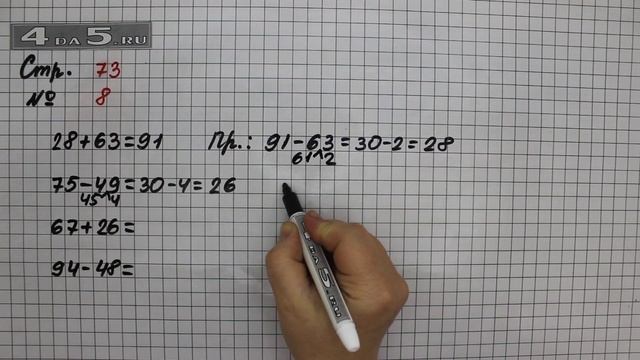 4 DA 5.RU
Стр. 73
№ 8
28+63=91 Пр.: 91-63=30-2=28
61 2
75-49=30-4=26
45 4
67+26=
94-48=